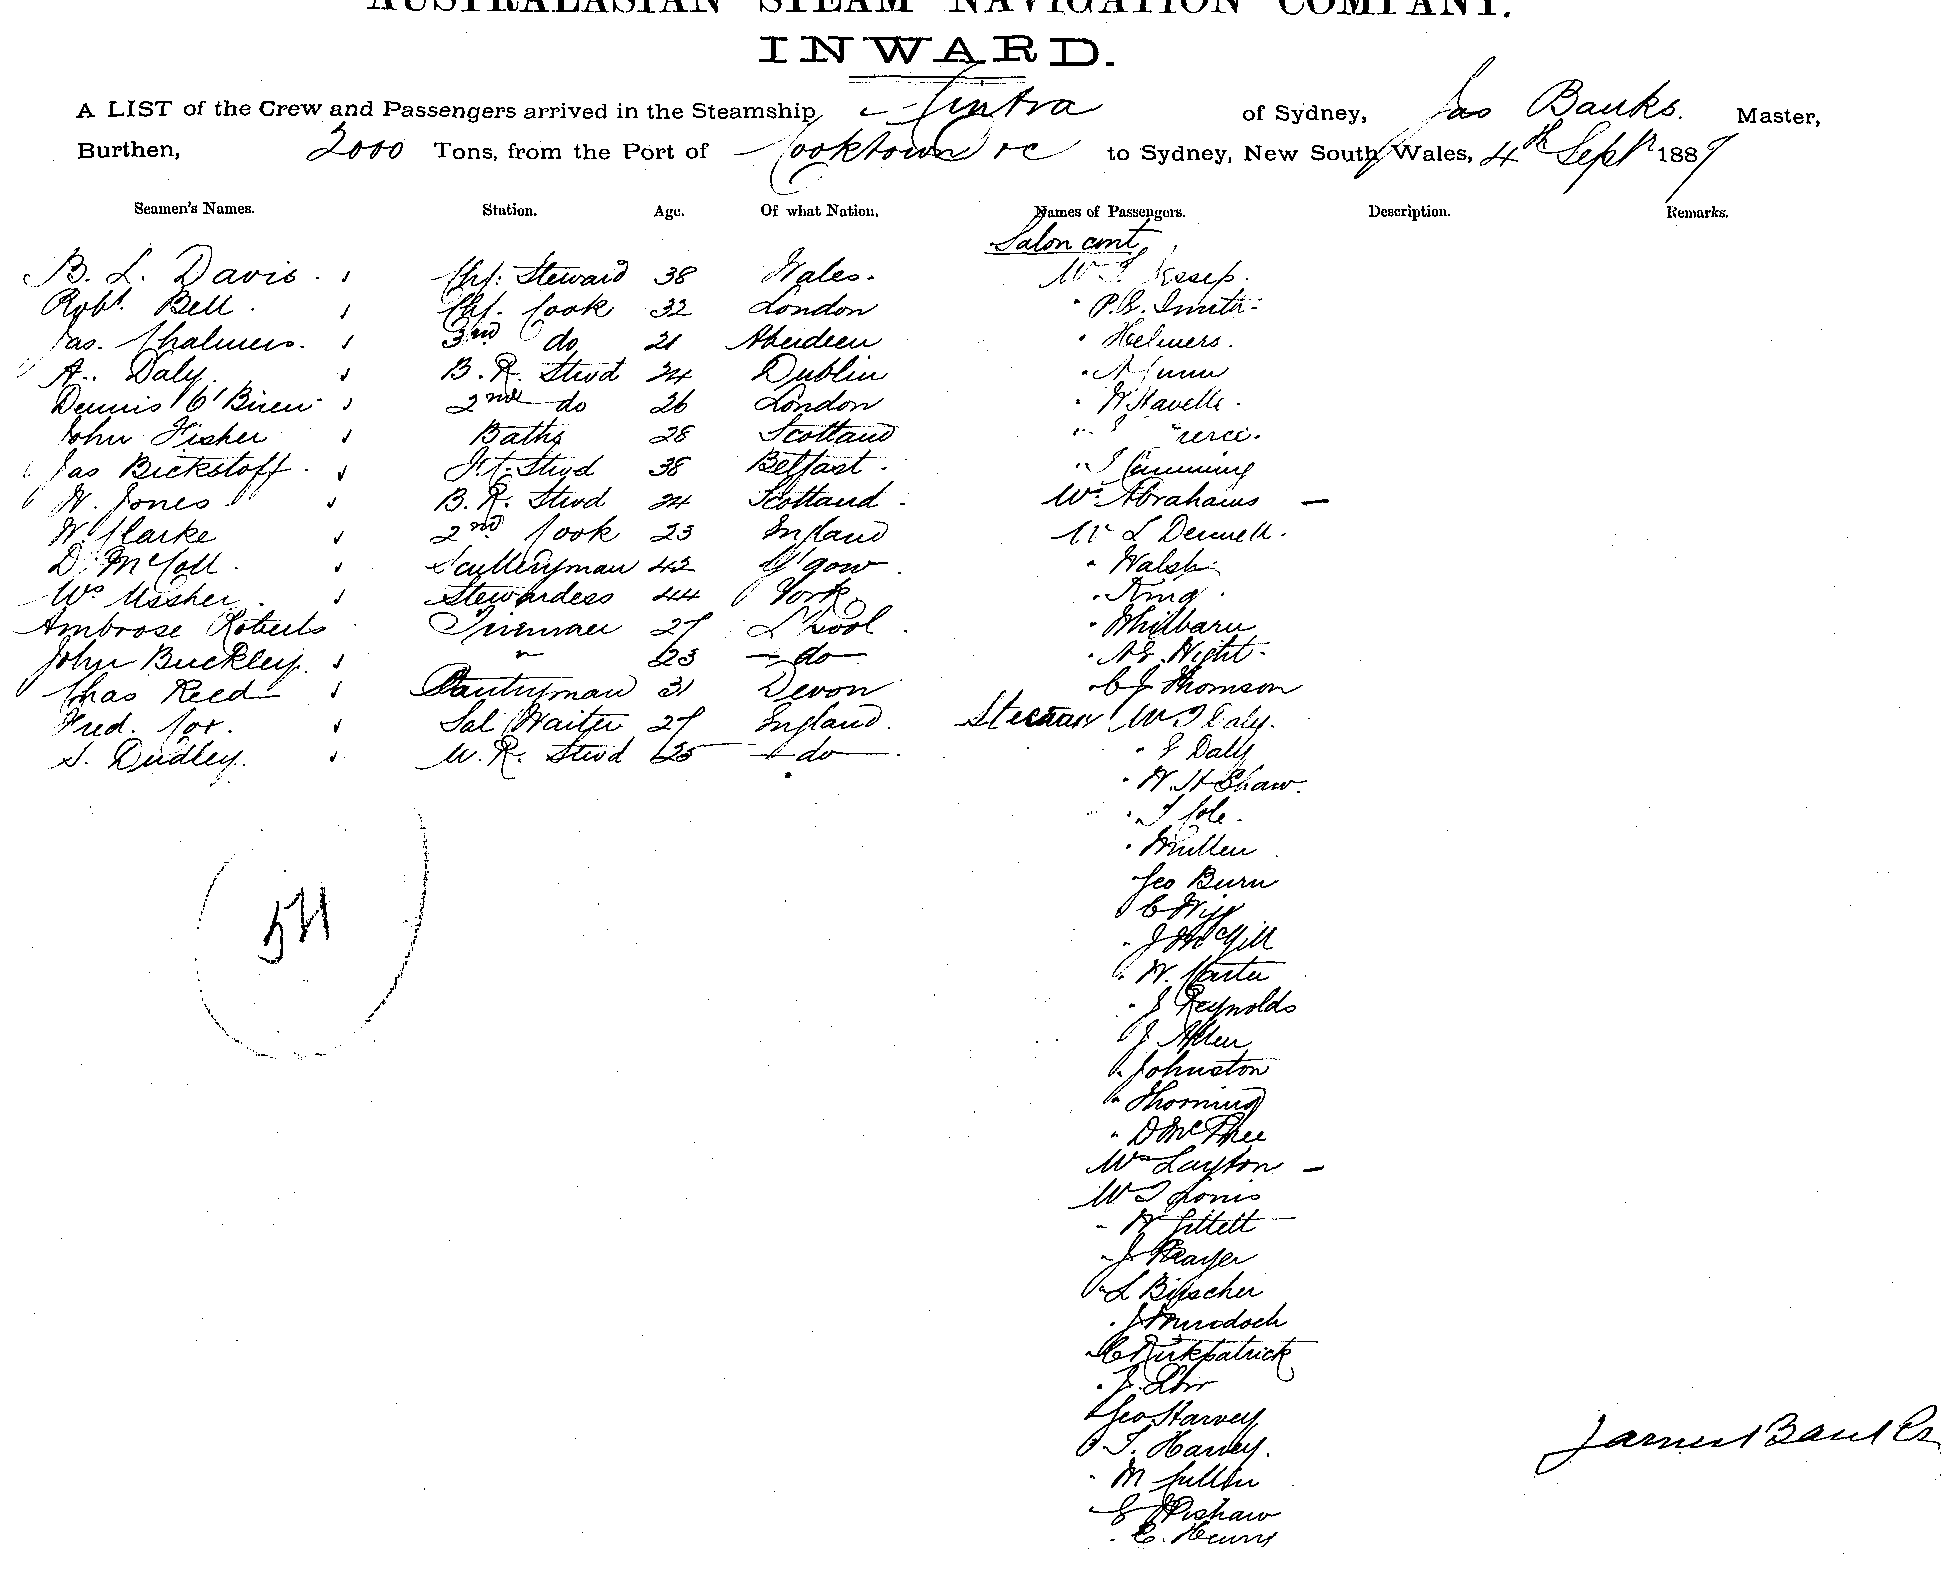 AUSTRALASIAN STEAM NAVIGATION COMPANY.
INWARD.
A LIST of the Crew and Passengers arrived in the Steamship Cintra of Sydney, Jas Banks. Master,
Burthen, 2000 Tons, from the Port of Cooktown &c to Sydney, New South Wales, 4th Sept 1887
Seamen's Names. Station. Age. Of what Nation. Names of Passengers. Description. Remarks.
Salon cont
B. L. Davis. Chf: Steward 38 Wales. Jessep.
Robt. Bell. Chf. Cook 32 London " P.E. Smith
Jas. Chalmers. 3rd do 21 Aberdeen " Helmers.
A. Daly. B.R. Stwd 24 Dublin
Dennis O'Brien 2nd do 26 London
John Fisher Baths 28 Scotland
Jas Bickstoff. Stwd 38 Belfast. Cumming
W. Jones B.R. Stwd 24 Scotland. Abrahams —
W. Clarke 2nd Cook 23 England L Dennett.
D. McColl. Sculleryman 42 G'gow. " Walsh
Ussher. Stewardess 44 York " King.
Ambrose Roberts Fireman 27 L'pool.
John Buckley. " 23 do Wight
Chas Reed Pantryman 31 Devon " C J Thomson
Fred. Cox. Sal Waiter 27 England. Daly.
S. Dudley. Stwd 25 do " E Daly
" W. H Shaw.
" T Cole.
" Mullen
Geo Burn
54
" J McGill
" W.
" J Reynolds
J Allen
" Johnston
" Thorning
" D McPhee
Layton —
" W Gillett
"
" L
" J Murdoch
" C Kirkpatrick
" J.
Geo Harvey
T. Harvey.
" M Cullen
" E. Henry
James Banks